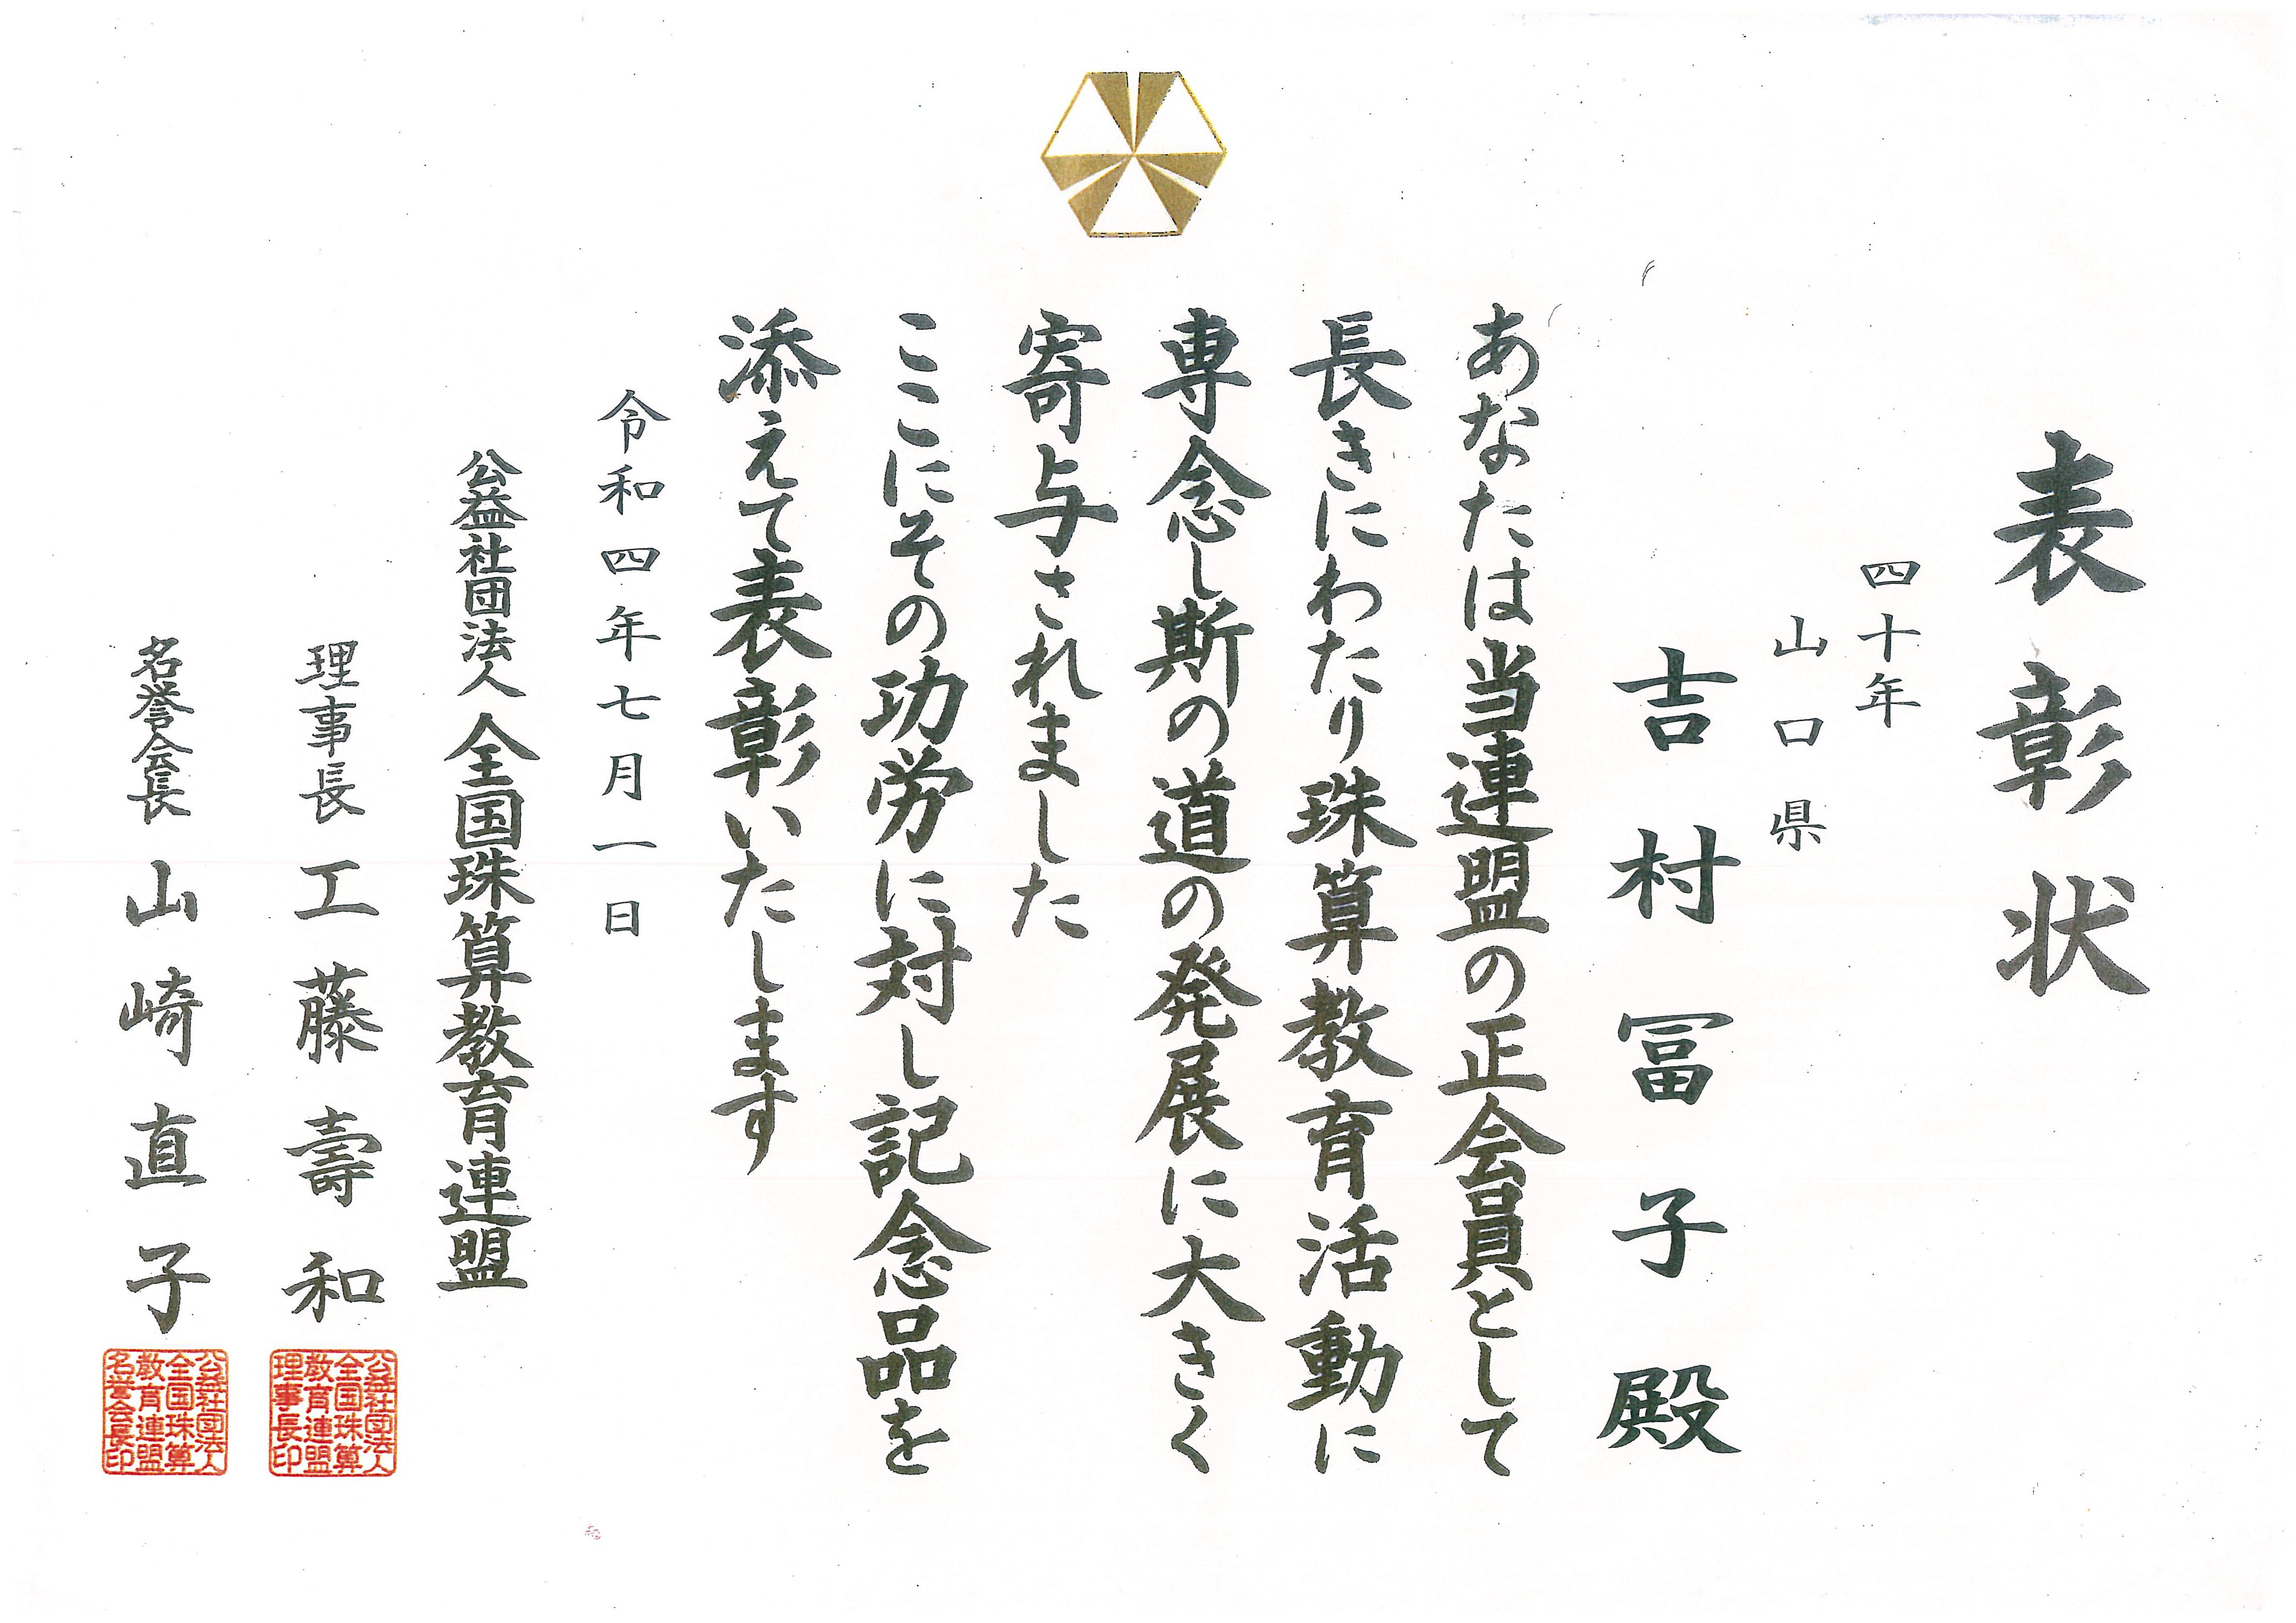 表彰状
四十年
山口県
吉村冨子殿
あなたは当連盟の正会員として
長きにわたり珠算教育活動に
専念し斯の道の発展に大きく
寄与されました
ここにその功労に対し記念品を
添えて表彰いたします
令和四年七月一日
公益社団法人 全国珠算教育連盟
理事長 工藤壽和
公益社団法人
全国珠算
教育連盟
理事長印
名誉会長 山崎直子
公益社団法人
全国珠算
教育連盟
名誉会長印